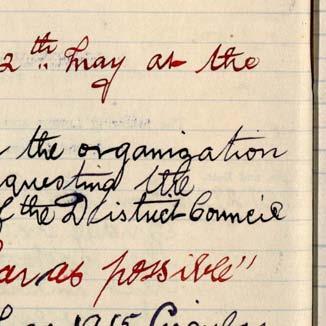 2th May at the
the organization
questing the
the District Council
as possible"
1915